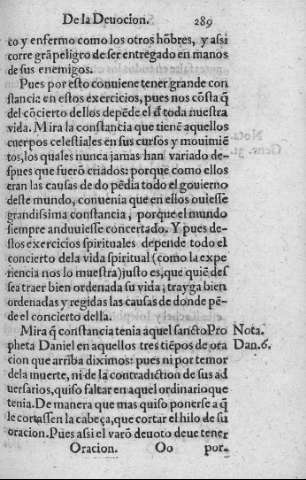 De la Deuocion. 289
to y enfermo como los otros hõbres, y aſsi
corre grã peligro de ſer entregado en manos
de ſus enemigos.
Pues por eſto conuiene tener grande con
ſtancia en eſtos exercicios, pues nos cõſta q̃
del cõcierto dellos depẽde el d̃ toda nueſtra
vida. Mira la conſtancia que tienẽ aquellos
cuerpos celeſtiales en ſus curſos y mouimiẽ
tos, los quales nunca jamas han variado deſ-
pues que fuerõ criados: porque como ellos
eran las cauſas de do pẽdia todo el gouierno
deſte mundo, conuenia que en ellos ouieſſe
grandiſsima conſtancia, porque el mundo
ſiempre anduuieſſe concertado. Y pues de-
ſtos exercicios ſpirituales depende todo el
concierto dela vida ſpiritual (como la expe
riencia nos lo mueſtra) juſto es, que quiẽ deſ
ſea traer bien ordenada ſu vida, trayga bien
ordenadas y regidas las cauſas de donde pẽ-
de el concierto della.
Mira q̃ conſtancia tenia aquel ſancto Pro Nota.
pheta Daniel en aquellos tres tiẽpos de ora Dan. 6.
cion que arriba diximos: pues ni por temor
dela muerte, ni de la contradiction de ſus ad
uerſarios, quiſo faltar en aquel ordinario que
tenia. De manera que mas quiſo ponerſe a q̃
le cortaſſen la cabeça, que cortar el hilo de ſu
oracion. Pues aſsi el varõ deuoto deue tener
Oracion. Oo por-